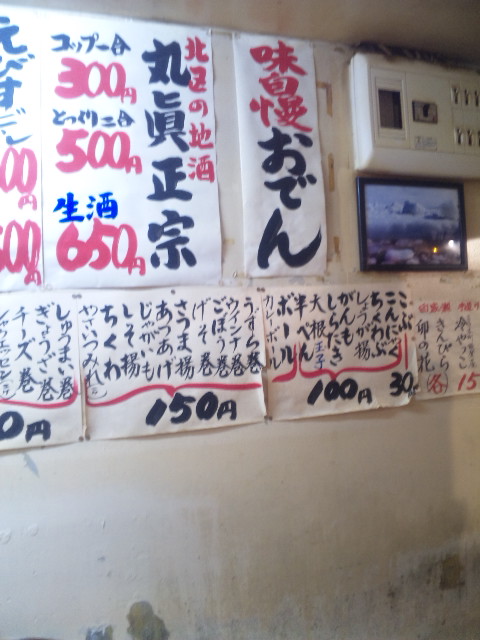 味自慢
おでん
北区の地酒
丸眞正宗
コップ一合
300円
とっくり二合
500円
生酒
650円
えびす
00円
600円
こぶ
30
こんにゃく
ちくわぶ
しょうが揚
がんも
しらたき
大根 玉子
半ぺん
ボール
カレーボール
100円
うずら巻
ウィンナ巻
ごぼう巻
げそ巻
さつま揚
あつあげ
じゃがいも
しそ揚
ちくわ
やさいつみれ
150円
しゅうまい巻
ぎょうざ巻
チーズ巻
0円
冷やっこ
きんぴら
卯の花
(各)
15